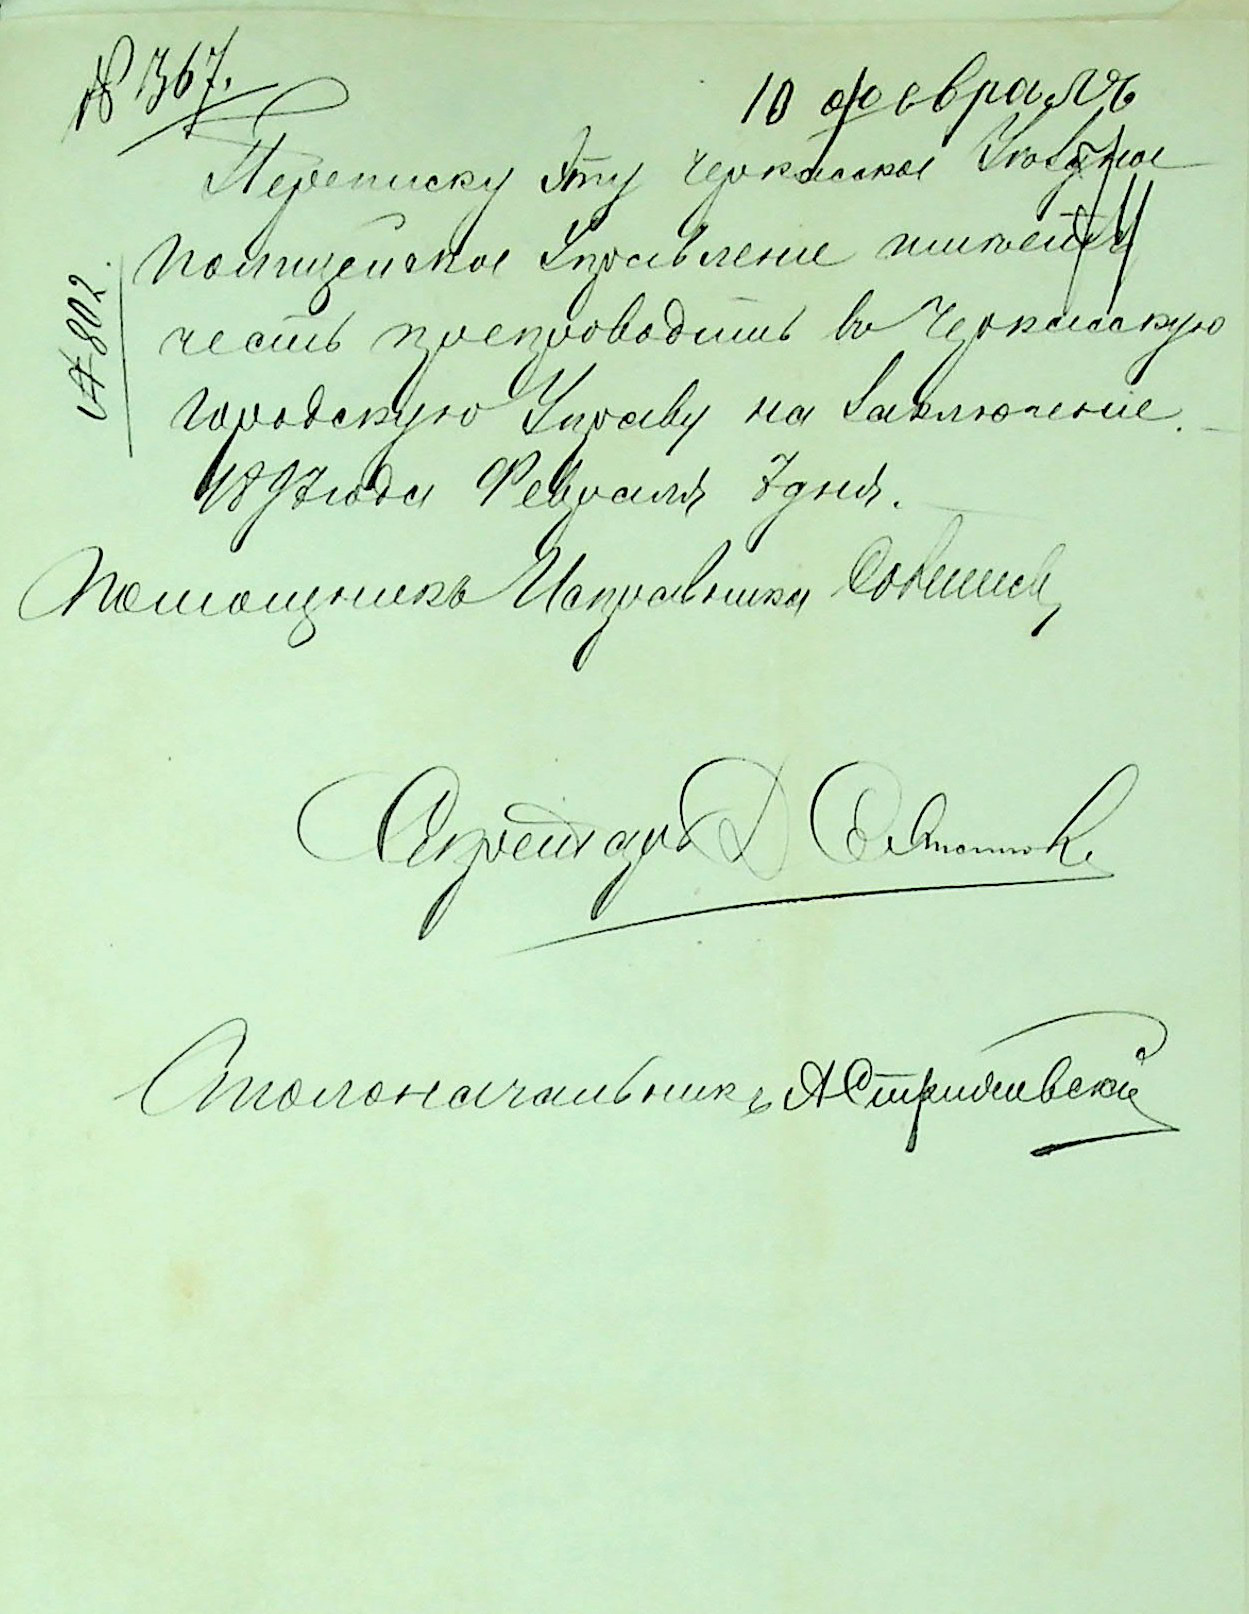 № 1367.
10 февраля
Переписку эту Черкасское Уѣздное
Полицейское Управленіе имѣетъ
№ 802.
честь препроводить въ Черкасскую
Городскую Управу на заключеніе.
1897 года Февраля 7 дня.
Помощникъ Исправника
Секретарь
Столоначальникъ А Стрижевскій